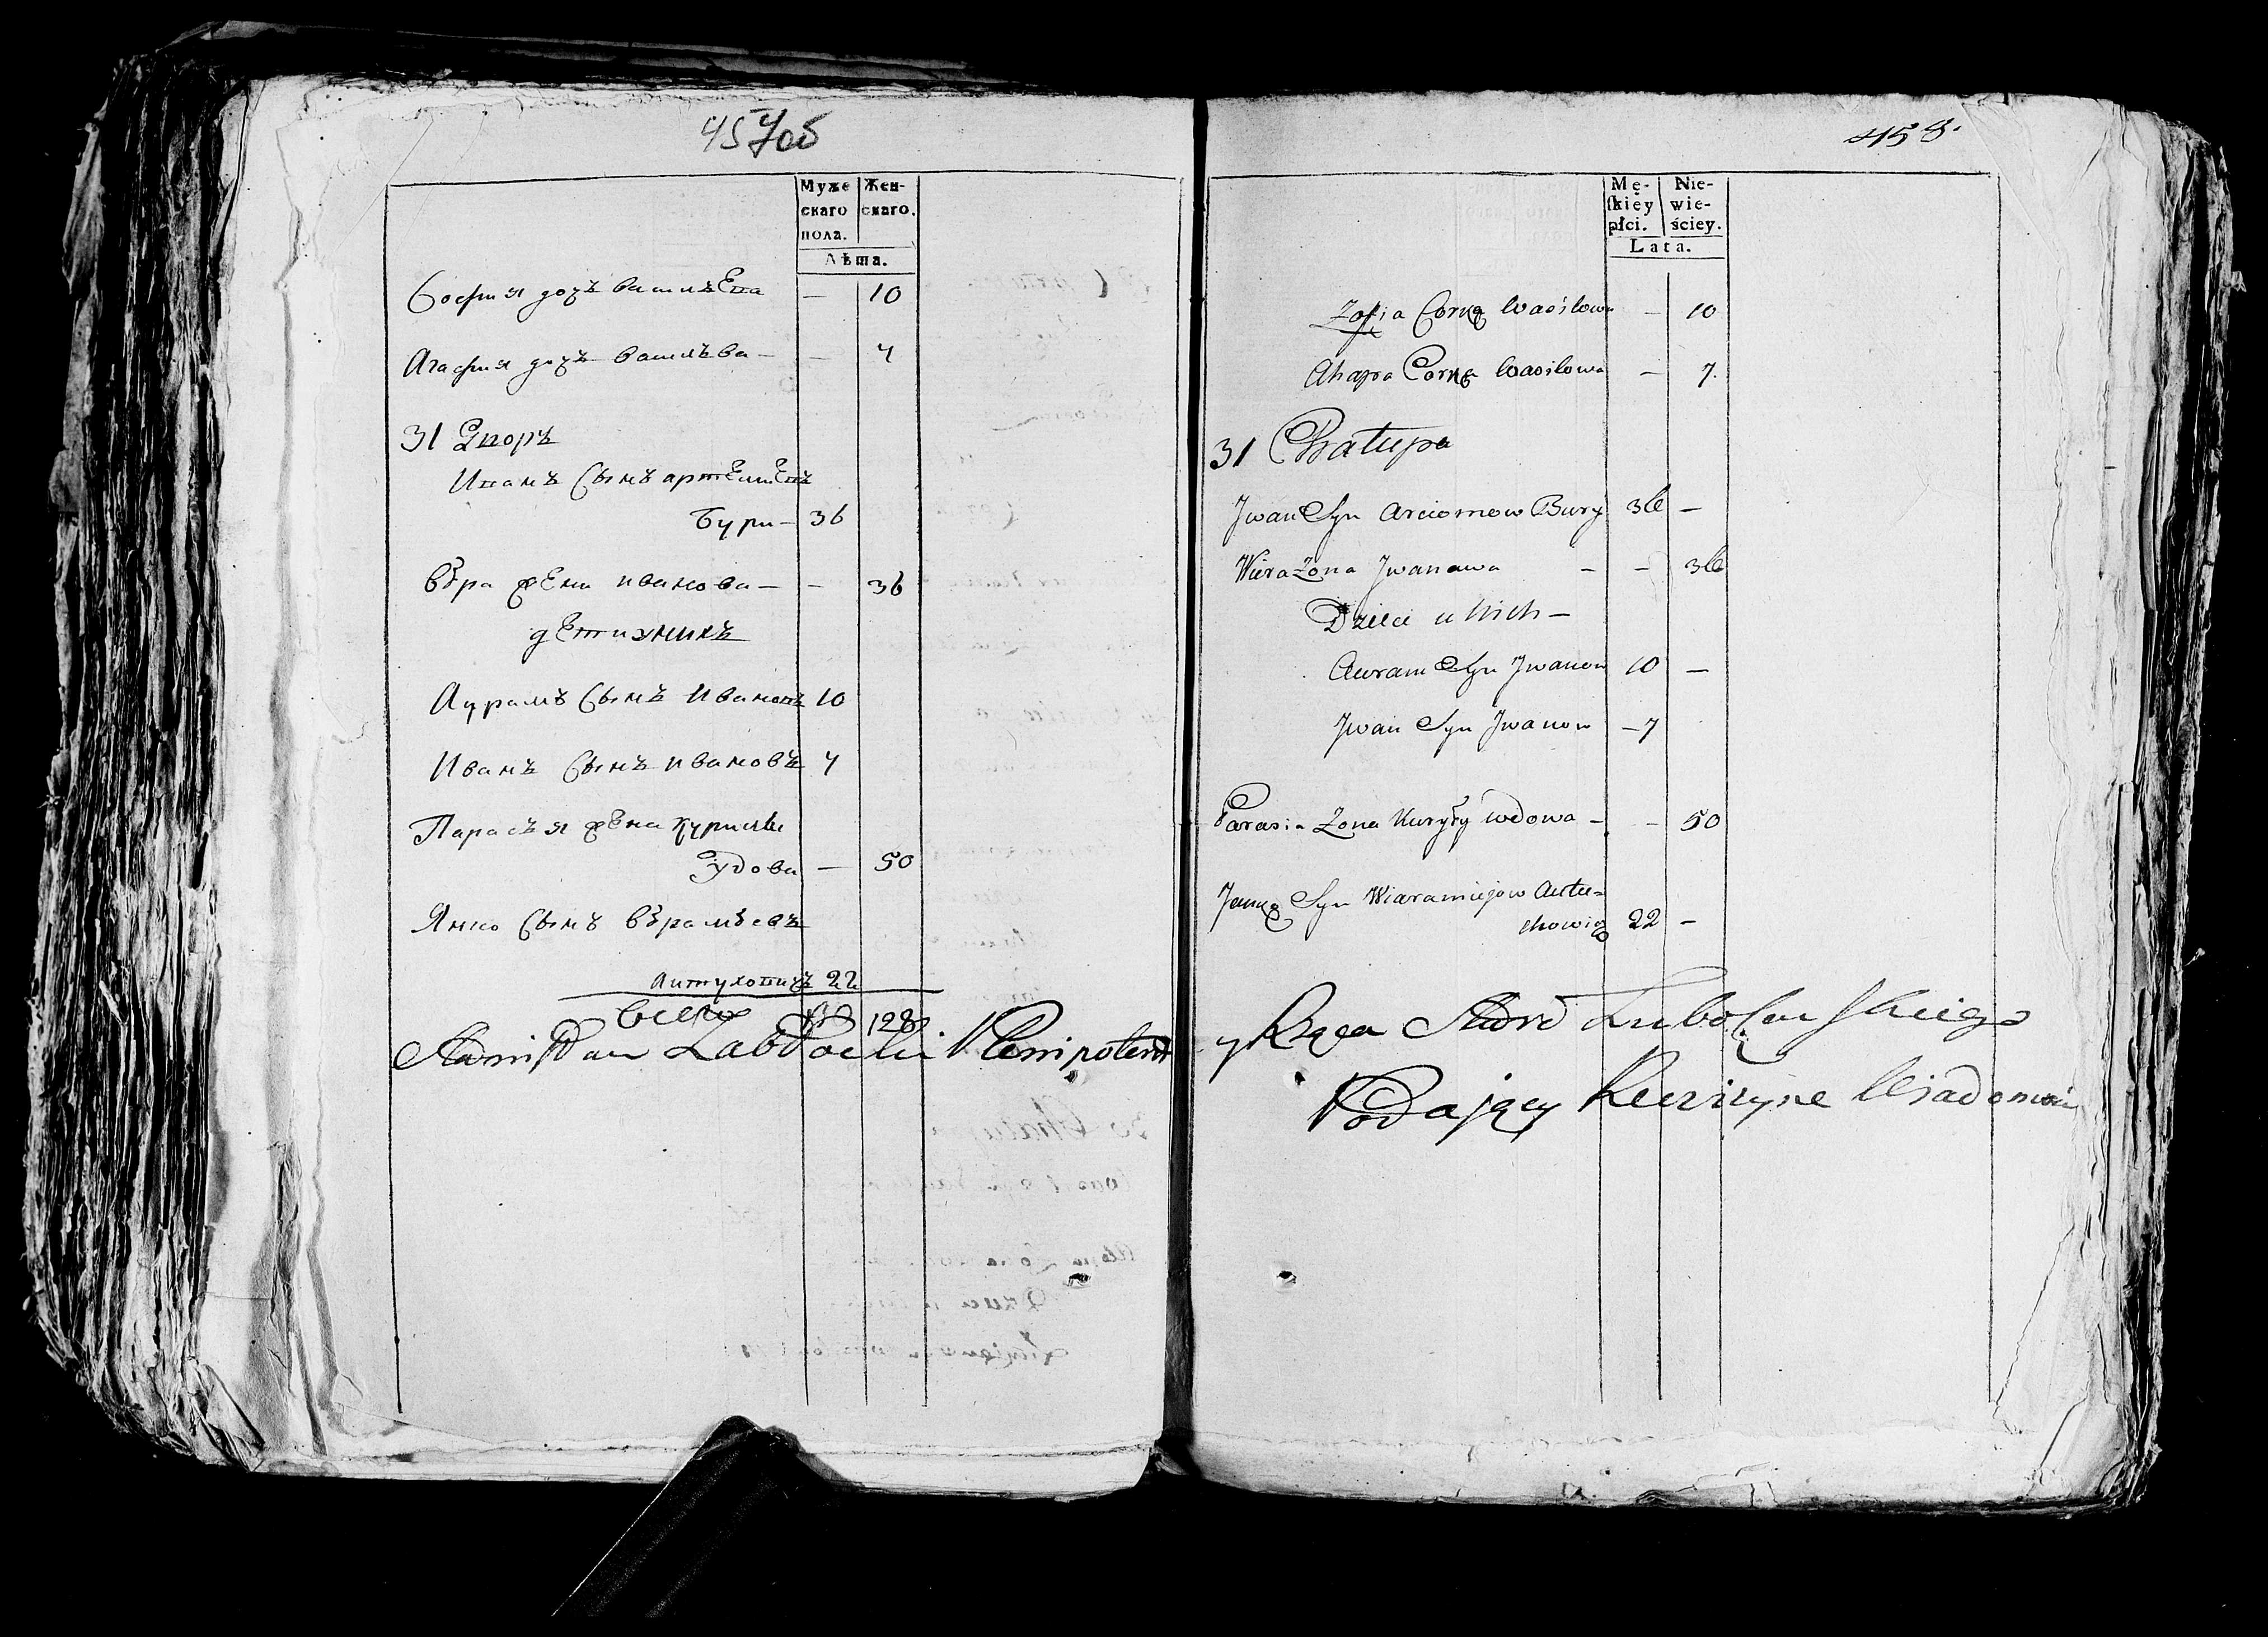 457об
Муже
скаго
пола.
Жен-
скаго.
Лѣта.
София дочъ васильEва — 10
Агафия дочъ василъва — — 7
31 Дворъ
Иванъ Сынъ артEмEвъ
Бури — 36
вѣра жEна иванова — — 36
дEти у нихъ
Аурамъ Сынъ Ивановъ 10
Иванъ Сынъ ивановъ 7
Парасъя жEна курилы
удова — 50
Янко Сынъ вѣрамѣевъ
Аутуховичъ 22
всего 128
Stanisław Zabłocki Plenipotent
458.
Mę-
ſkiey
płci.
Nie-
wie-
ściey.
Lata.
Zofia Corka Wasilowa — 10
Ahapa Corka Wasilowa — 7.
31 Chatupa
Jwan Syn Arciomow Bury 36 —
Wiera Zona Jwanawa — — 36
Dzieci u Nich —
Auram Syn Jwanow 10 —
Jwan Syn Jwanow — 7
Parasia Zona Kuryły wdowa — — 50
Janka Syn Wiaramiejow Autu=
chowicz 22 —
y Rządca
Podajęcy